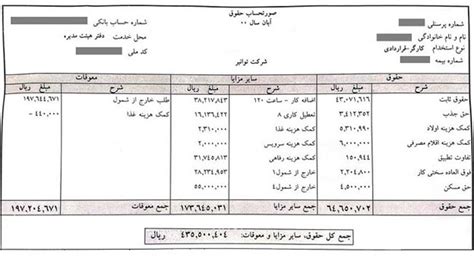 صورتحساب حقوق
آبان سال ۰۰
شماره پرسنلی
نام و نام خانوادگی
نوع استخدام کارگر-قراردادی
شماره بیمه
شماره حساب بانکی
محل خدمت دفتر هیئت مدیره
کد ملی
شرکت توانیر
حقوق سایر مزایا معوقات
شرح مبلغ ریال شرح مبلغ ریال شرح مبلغ ریال
حقوق ثابت ۴۳,۰۷۱,۶۱۶ اضافه کار - ساعت ۱۲۰ ۳۸,۲۱۷,۸۴۳ طلب خارج از شمول ۱۹۷,۶۴۴,۶۷۱
حق جذب ۳,۴۱۲,۳۵۲ تعطیل کاری ۸ ۱۶,۱۳۷,۴۲۲ کمک هزینه غذا ۴۴۰,۰۰۰ -
کمک هزینه اولاد ۵,۳۱۰,۹۹۰ کمک هزینه غذا ۲,۳۱۰,۰۰۰
کمک هزینه اقلام مصرفی ۶,۰۰۰,۰۰۰ کمک هزینه سرویس ۲,۰۰۰,۰۰۰
تفاوت تطبیق ۱۵۰,۹۴۴ کمک هزینه رفاهی ۳۱,۷۴۵,۸۱۳
فوق العاده سختی کار ۲,۲۰۴,۸۰۰ خارج از شمول۱ ۲۸,۲۳۴,۹۵۳
حق مسکن ۴,۵۰۰,۰۰۰ خارج از شمول۴ ۵۵,۰۰۰,۰۰۰
جمع حقوق ۶۴,۶۵۰,۷۰۲ جمع سایر مزایا ۱۷۳,۶۴۵,۰۳۱ جمع معوقات ۱۹۷,۲۰۴,۶۷۱
جمع کل حقوق، سایر مزایا و معوقات: ۴۳۵,۵۰۰,۴۰۴ ریال